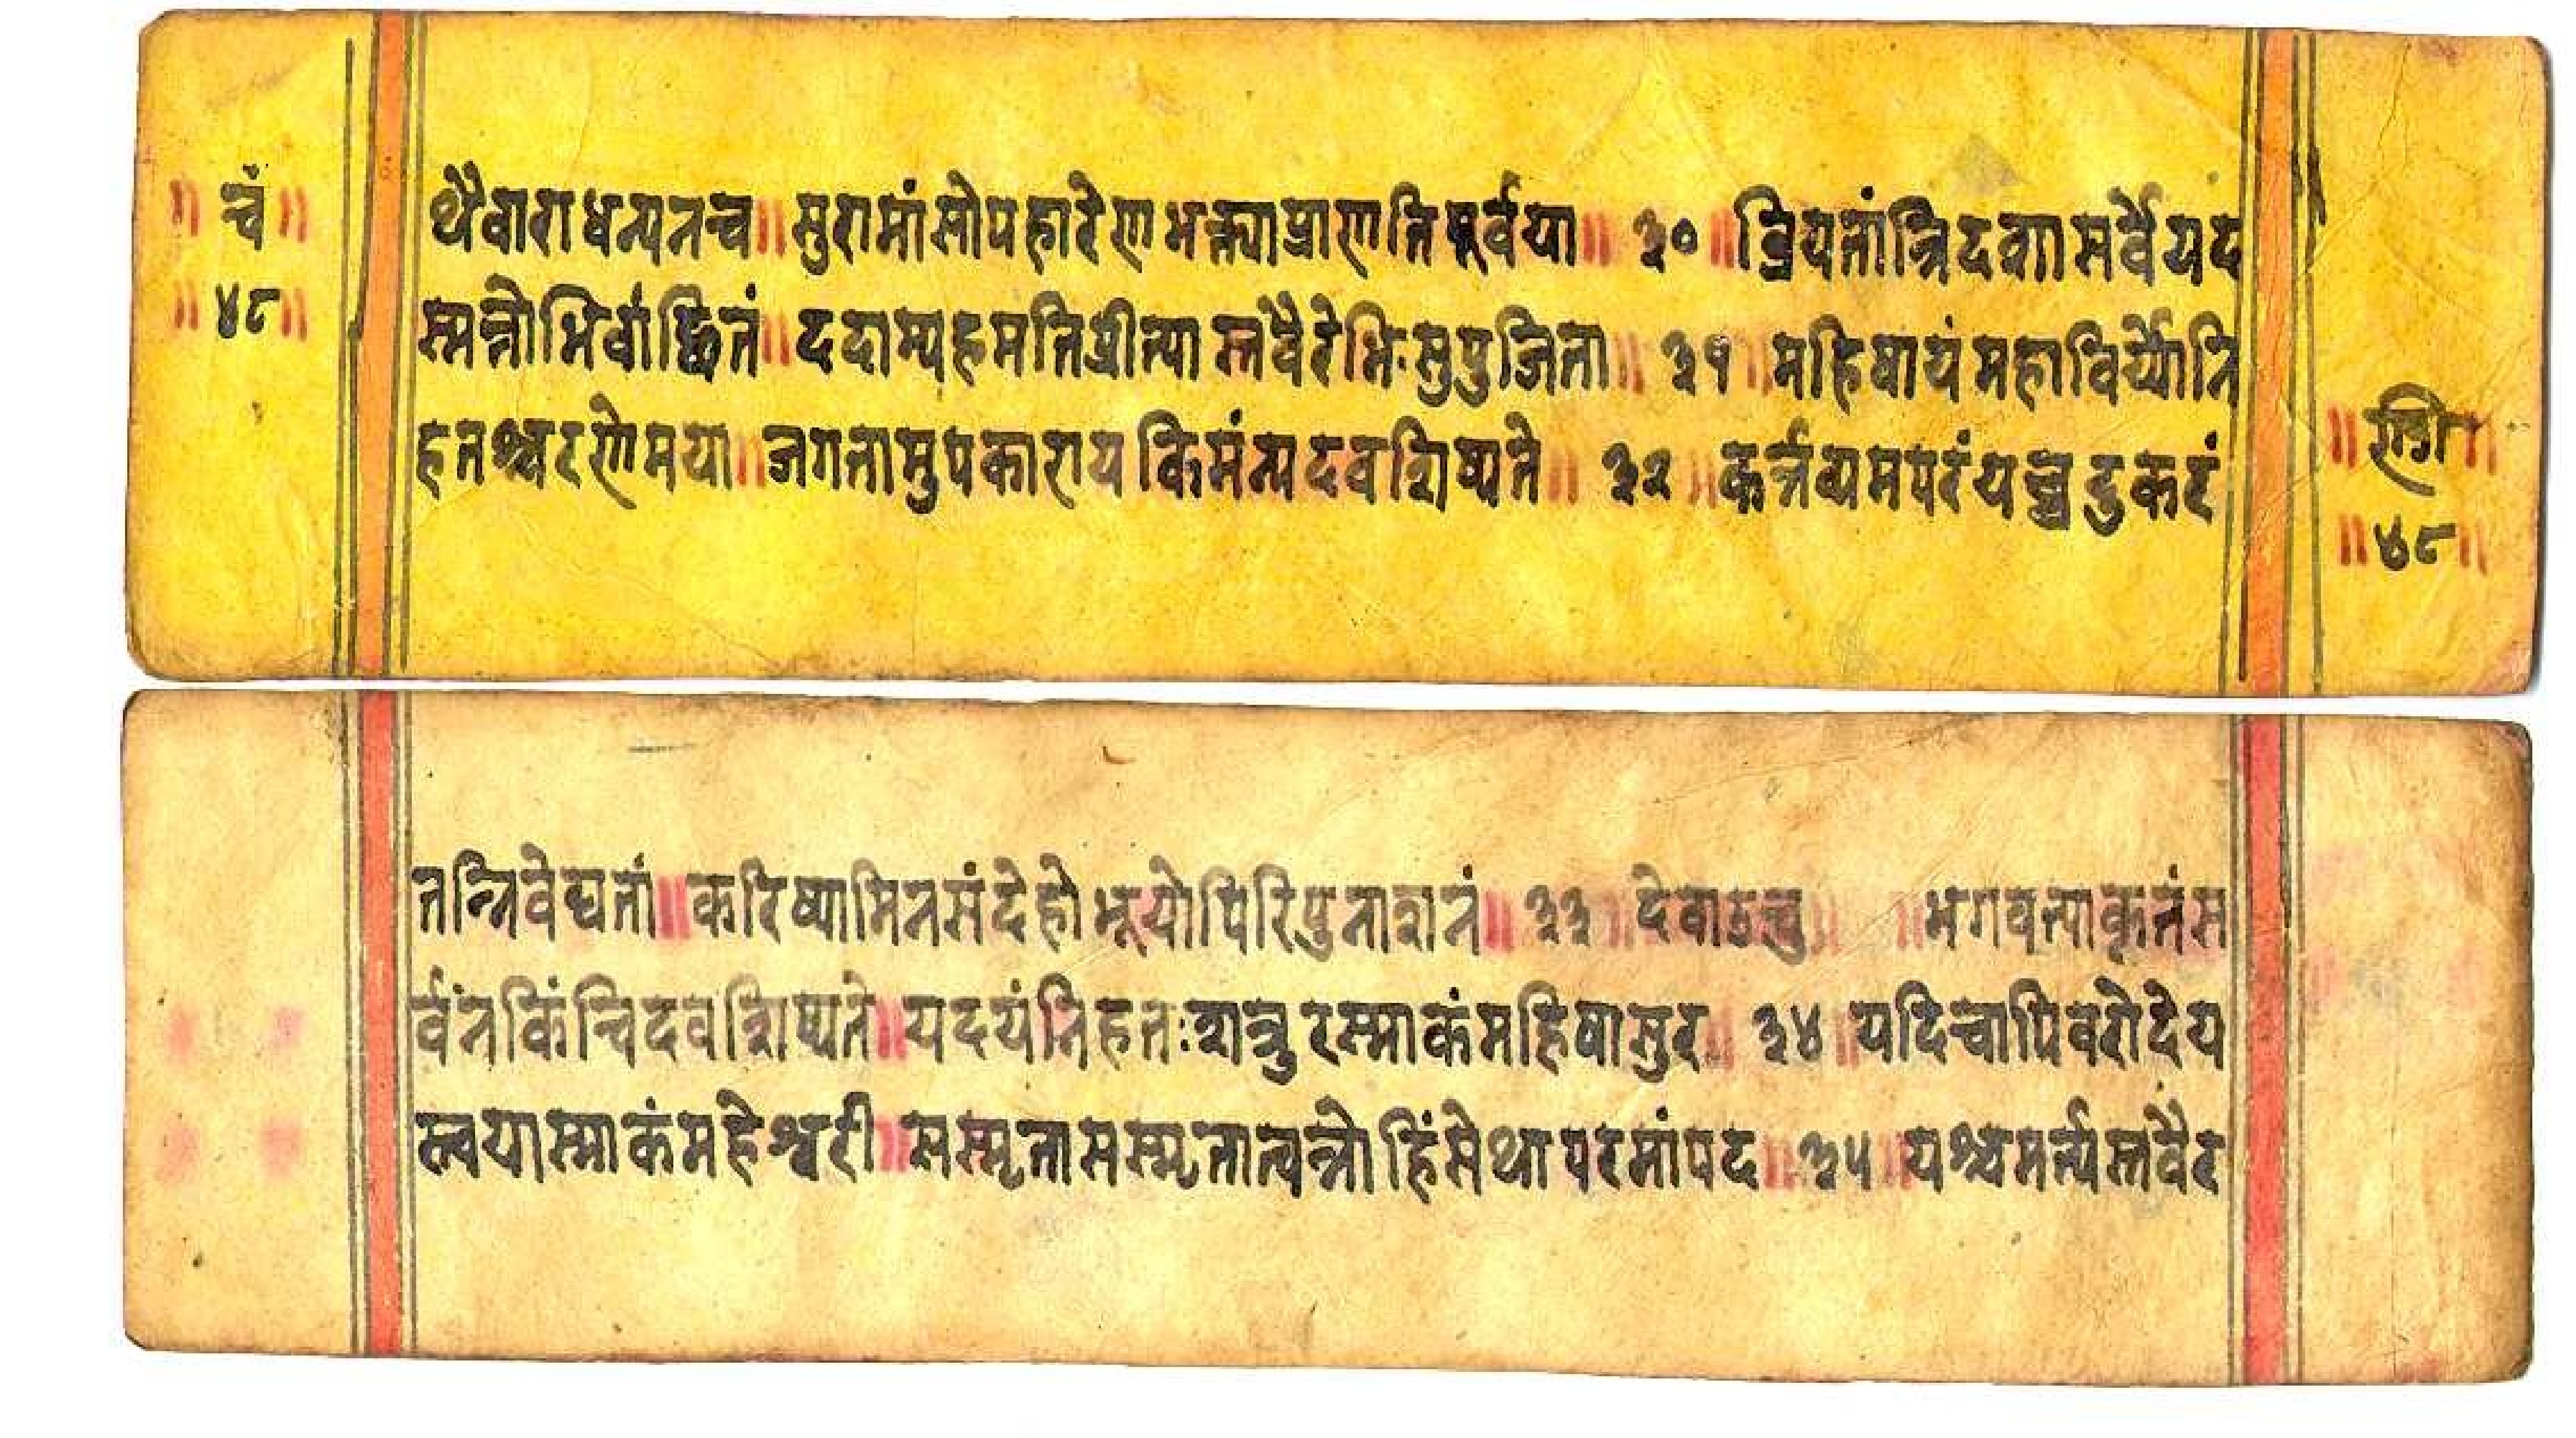 ॥ चं ॥
॥ ४८ ॥
थैवाराधन्यनन्च ॥ सुरामांसोपहारेण भक्त्याप्राणतिपूर्वया ॥ ३० ॥ व्रियतांत्रिदशासर्वेयद
स्मत्तोभिवांछितं ॥ ददाम्यहमतिप्रीत्या स्तवैरेभिःसुपुजिता ॥ ३१ ॥ महिषायं महाविर्य्योनि
हतश्चरणेमया ॥ जगतामुपकाराय किमंन्यदवशिष्यते ॥ ३२ ॥ कर्त्तव्यमपरंयच्चदुकरं
॥ ण्डी ॥
॥ ४८ ॥
तन्निवेद्यतां ॥ करिष्यामिनसंदेहो भूयोपिरिपुनाशनं ॥ ३३ ॥ देवाऊचु ॥ ॥ भगवत्याकृतंस
र्वंनकिंन्चिदवशिष्यते ॥ यदयंनिहतःशत्रुरस्माकंमहिषासुर ॥ ३४ ॥ यदिचापिवरोदेय
स्त्वयास्माकंमहेश्वरी ॥ सस्मृतासस्मृतात्वन्नो हिंसेथापरमांपद ॥ ३५ ॥ यश्चमर्त्यस्तवैर